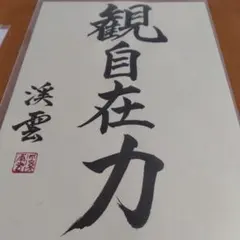 観自在力
渓雲